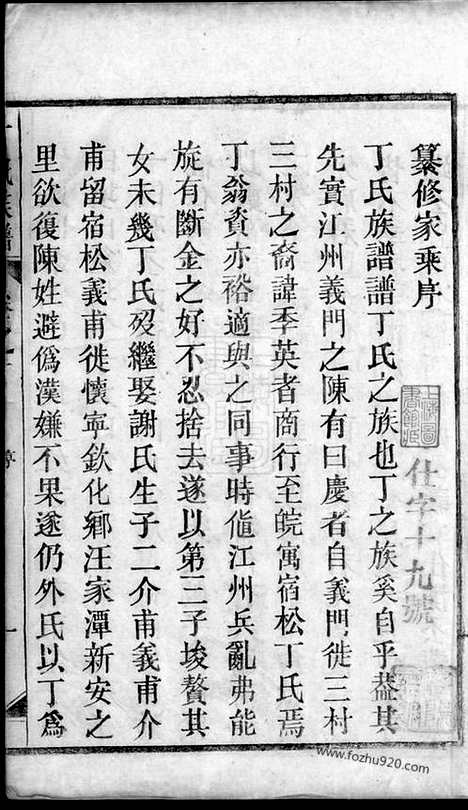 纂修家乘序
仕字十九號
丁氏族譜譜丁氏之族也丁之族奚自乎葢其
先實江州義門之陳有曰慶者自義門徙三村
三村之裔諱季英者商行至皖寓宿松丁氏焉
丁翁資亦裕適與之同事時値江州兵亂弗能
旋有斷金之好不忍捨去遂以第三子埈贅其
女未幾丁氏歿繼娶謝氏生子二介甫義甫介
甫留宿松義甫徙懷寧欽化鄉汪家潭新安之
里欲復陳姓避僞漢嫌不果遂仍外氏以丁爲
www.fozhu920.com